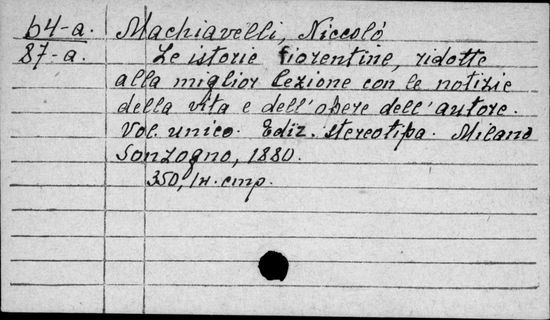 64-a. Machiavelli, Niccoló
87-a. Le istorie fiorentine, ridotte
alla miglior lezione con le notizie
della vita e dell'opere dell'autore.
Vol. unico. Ediz. stereotipa. Milano
Sonzogno, 1880.
350, 1 н. стр.